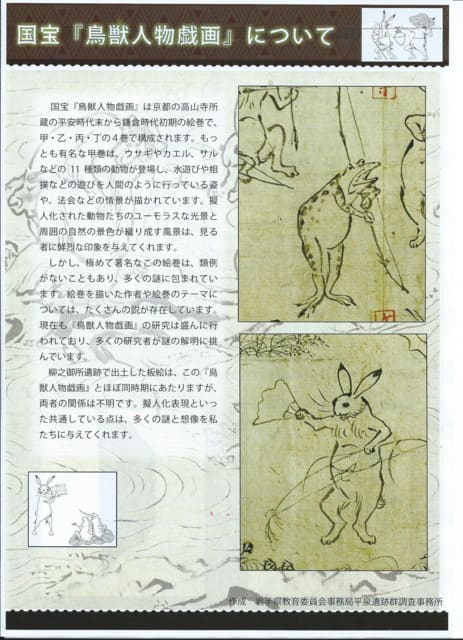 国宝『鳥獣人物戯画』について
国宝『鳥獣人物戯画』は京都の高山寺所
蔵の平安時代末から鎌倉時代初期の絵巻で、
甲・乙・丙・丁の４巻で構成されます。もっ
とも有名な甲巻は、ウサギやカエル、サル
などの 11 種類の動物が登場し、水遊びや相
撲などの遊びを人間のように行っている姿
や、法会などの情景が描かれています。擬
人化された動物たちのユーモラスな光景と
周囲の自然の景色が織り成す風景は、見る
者に鮮烈な印象を与えてくれます。
しかし、極めて著名なこの絵巻は、類例
がないこともあり、多くの謎に包まれてい
ます。絵巻を描いた作者や絵巻のテーマに
ついては、たくさんの説が存在しています。
現在も『鳥獣人物戯画』の研究は盛んに行
われており、多くの研究者が謎の解明に挑
んでいます。
柳之御所遺跡で出土した板絵は、この『鳥
獣人物戯画』とほぼ同時期にあたりますが、
両者の関係は不明です。擬人化表現といっ
た共通している点は、多くの謎と想像を私
たちに与えてくれます。
作成　岩手県教育委員会事務局平泉遺跡群調査事務所